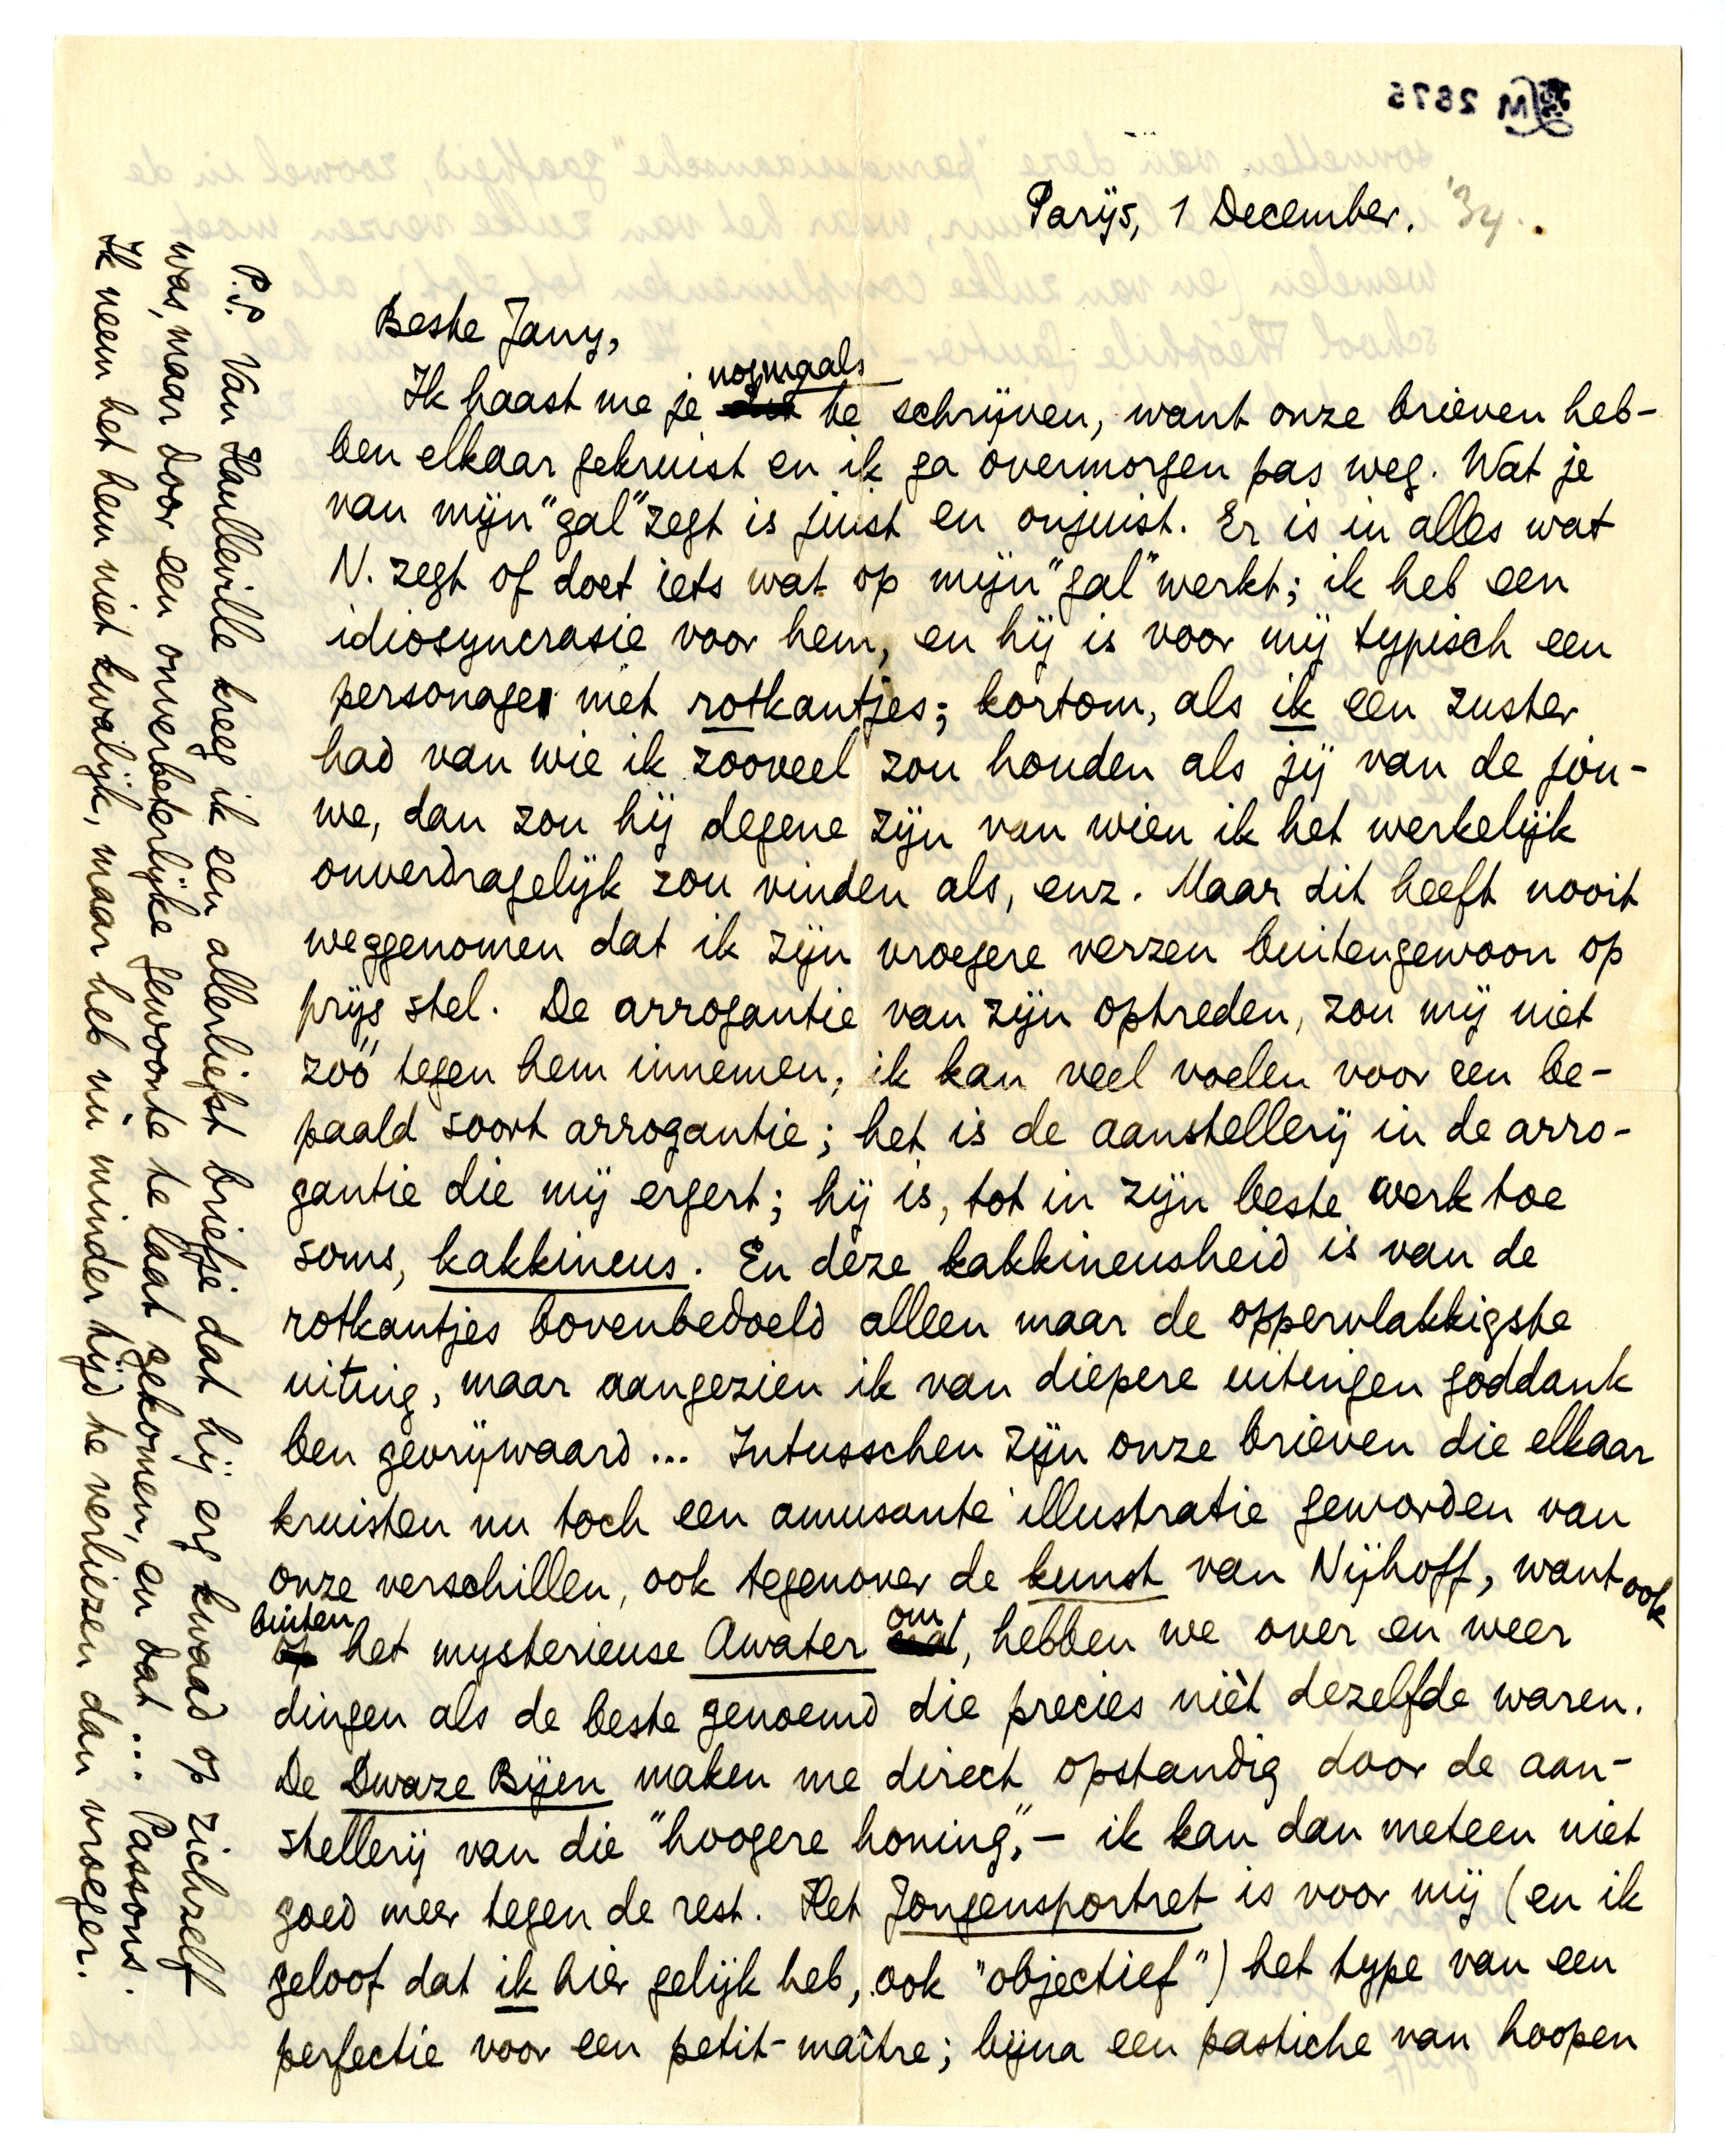 Parijs, 1 December. '34.
Beste Jany,
Ik haast me je nogmaals te schrijven, want onze brieven heb-
ben elkaar gekruist en ik ga overmorgen pas weg. Wat je
van mijn "gal" zegt is juist en onjuist. Er is in alles wat
N. zegt of doet iets wat op mijn "gal" werkt; ik heb een
idiosyncrasie voor hem, en hij is voor mij typisch een
personage met rotkantjes; kortom, als ik een zuster
had van wie ik zooveel zou houden als jij van de jou-
we, dan zou hij degene zijn van wien ik het werkelijk
onverdragelijk zou vinden als, enz. Maar dit heeft nooit
weggenomen dat ik zijn vroegere verzen buitengewoon op
prijs stel. De arrogantie van zijn optreden, zou mij niet
zóó tegen hem innemen; ik kan veel voelen voor een be-
paald soort arrogantie; het is de aanstellerij in de arro-
gantie die mij ergert; hij is, tot in zijn beste werk toe
soms, kakkineus. En deze kakkineusheid is van de
rotkantjes bovenbedoeld alleen maar de oppervlakkigste
uiting, maar aangezien ik van diepere uitingen goddank
ben gevrijwaard... Intusschen zijn onze brieven die elkaar
kruisten nu toch een amusante illustratie geworden van
onze verschillen, ook tegenover de kunst van Nijhoff, want ook
buiten het mysterieuse Awater om, hebben we over en weer
dingen als de beste genoemd die precies niét dezelfde waren.
De Dwaze Bijen maken me direct opstandig door de aan-
stellerij van die "hoogere honing", – ik kan dan meteen niet
goed meer tegen de rest. Het Jongensportret is voor mij (en ik
geloof dat ik hier gelijk heb, ook "objectief") het type van een
perfectie voor een petit-maître; bijna een pastiche van hoopen
P.S. Van Haulleville kreeg ik een allerliefst briefje dat hij erg kwaad op zichzelf
was, maar door een onverbeterlijke gewoonte te laat gekomen, en dat... Passons.
Ik neem het hem niet kwalijk, maar heb nu minder tijd te verliezen dan vroeger.
M 2675